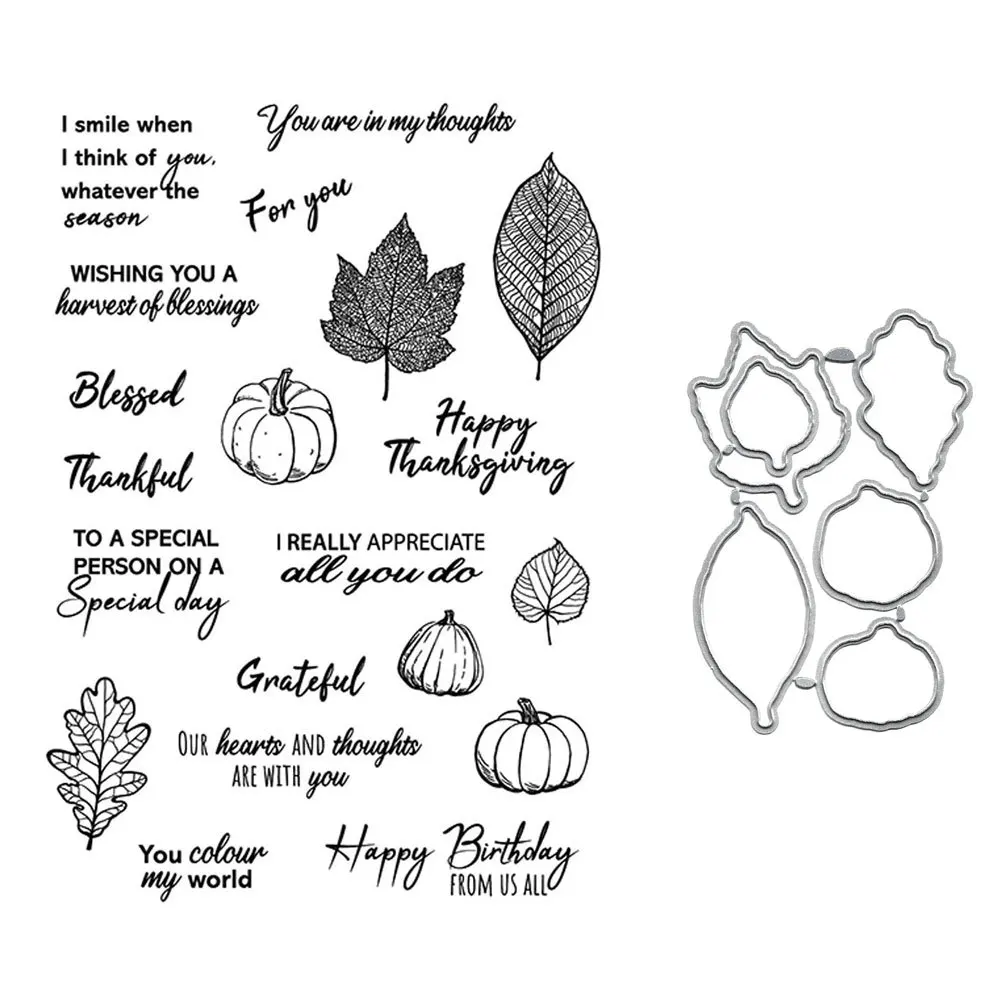 I smile when
I think of you,
whatever the
season
You are in my thoughts
For you
WISHING YOU A
harvest of blessings
Blessed
Happy
Thanksgiving
Thankful
TO A SPECIAL
PERSON ON A
Special day
I REALLY APPRECIATE
all you do
Grateful
OUR hearts AND thoughts
ARE WITH you
You colour
my world
Happy Birthday
FROM US ALL